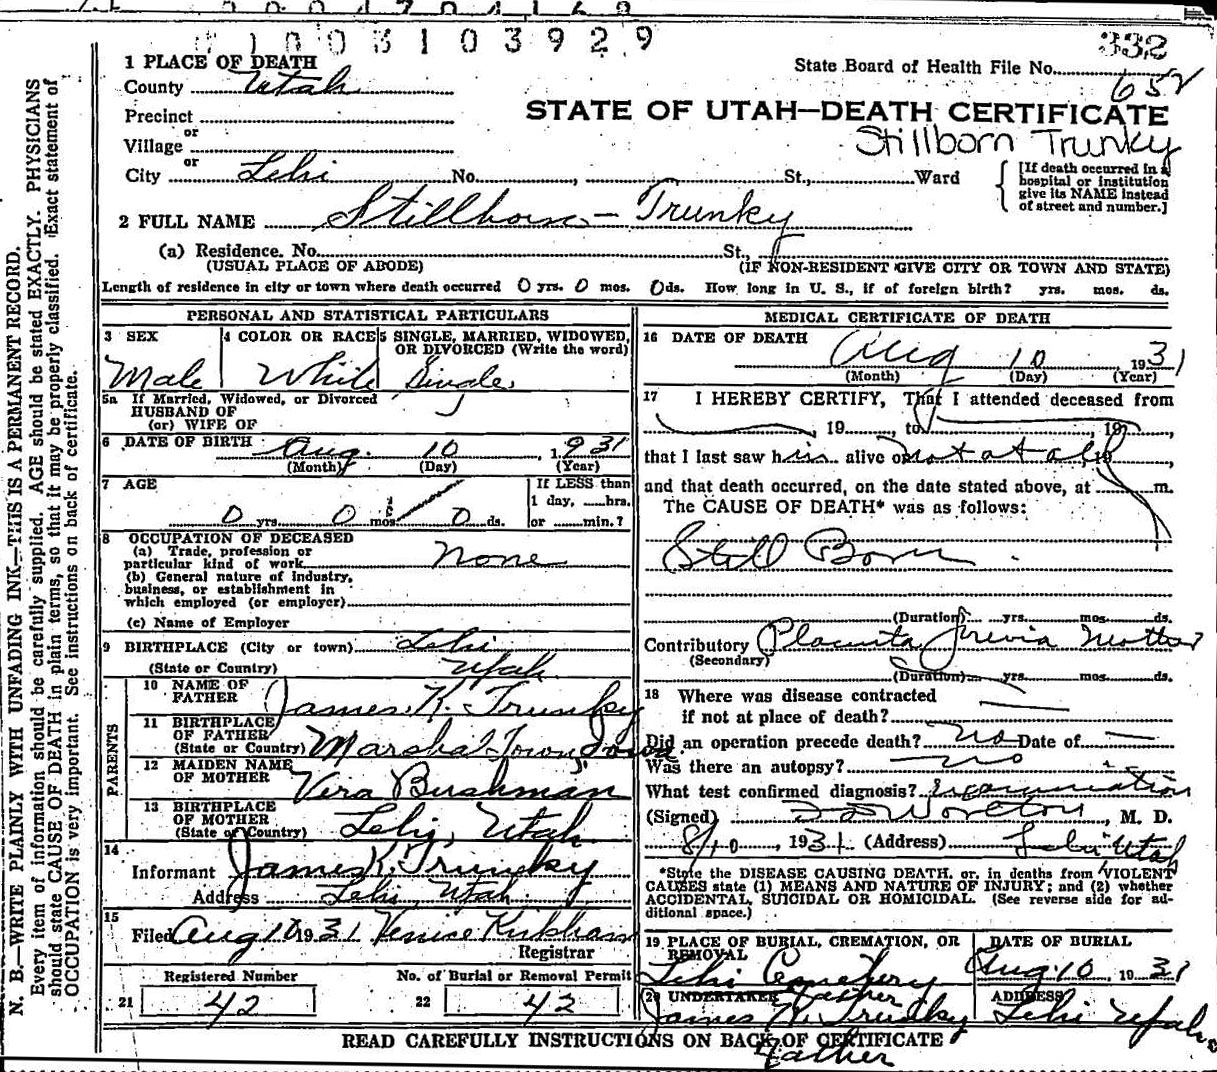 0 1 0 0 3 1 0 3 9 2 9
332
1 PLACE OF DEATH
State Board of Health File No.
652
County Utah
STATE OF UTAH—DEATH CERTIFICATE
Precinct
or
Village
Stillborn Trunky
or
City Lehi No. , St., Ward
[If death occurred in a hospital or institution give its NAME instead of street and number.]
2 FULL NAME Stillborn - Trunky
(a) Residence. No. St.,
(USUAL PLACE OF ABODE) (IF NON-RESIDENT GIVE CITY OR TOWN AND STATE)
Length of residence in city or town where death occurred 0 yrs. 0 mos. 0 ds. How long in U. S., if of foreign birth? yrs. mos. ds.
PERSONAL AND STATISTICAL PARTICULARS
3 SEX 4 COLOR OR RACE 5 SINGLE, MARRIED, WIDOWED, OR DIVORCED (Write the word)
Male White Single
5a If Married, Widowed, or Divorced
HUSBAND OF
(or) WIFE OF
6 DATE OF BIRTH Aug. 10, 1931
(Month) (Day) (Year)
7 AGE
If LESS than
1 day, hrs.
0 yrs. 0 mos. 0 ds. or min.?
8 OCCUPATION OF DECEASED
(a) Trade, profession or
particular kind of work None
(b) General nature of industry,
business, or establishment in
which employed (or employer)
(c) Name of Employer
9 BIRTHPLACE (City or town) Lehi
(State or Country) Utah
PARENTS
10 NAME OF FATHER James K. Trunky
11 BIRTHPLACE OF FATHER
(State or Country) Marshal Town, Iowa.
12 MAIDEN NAME OF MOTHER Vera Bushman
13 BIRTHPLACE OF MOTHER
(State or Country) Lehi, Utah.
14
Informant James K. Trunky
Address Lehi, Utah
15
Filed Aug 10 1931 Venice Kirkham
Registrar
Registered Number No. of Burial or Removal Permit
21 42 22 42
MEDICAL CERTIFICATE OF DEATH
16 DATE OF DEATH Aug 10 1931
(Month) (Day) (Year)
17 I HEREBY CERTIFY, That I attended deceased from
, 19 , to , 19 ,
that I last saw him alive on not at all, 19 ,
and that death occurred, on the date stated above, at m.
The CAUSE OF DEATH* was as follows:
Still Born
(Duration) yrs. mos. ds.
Contributory Placenta Previa Mother
(Secondary)
(Duration) yrs. mos. ds.
18 Where was disease contracted
if not at place of death?
Did an operation precede death? no Date of —
Was there an autopsy? no
What test confirmed diagnosis? examination
(Signed) , M. D.
8/10, 1931 (Address) Lehi Utah
*State the DISEASE CAUSING DEATH, or, in deaths from VIOLENT
CAUSES state (1) MEANS AND NATURE OF INJURY; and (2) whether
ACCIDENTAL, SUICIDAL OR HOMICIDAL. (See reverse side for ad-
ditional space.)
19 PLACE OF BURIAL, CREMATION, OR REMOVAL DATE OF BURIAL
Lehi Cemetery Aug. 10, 1931
20 UNDERTAKER Father ADDRESS
James K. Trunky Lehi Utah
READ CAREFULLY INSTRUCTIONS ON BACK OF CERTIFICATE
Father
N. B.—WRITE PLAINLY WITH UNFADING INK—THIS IS A PERMANENT RECORD.
Every item of information should be carefully supplied. AGE should be stated EXACTLY. PHYSICIANS
should state CAUSE OF DEATH in plain terms, so that it may be properly classified. Exact statement of
OCCUPATION is very important. See instructions on back of certificate.